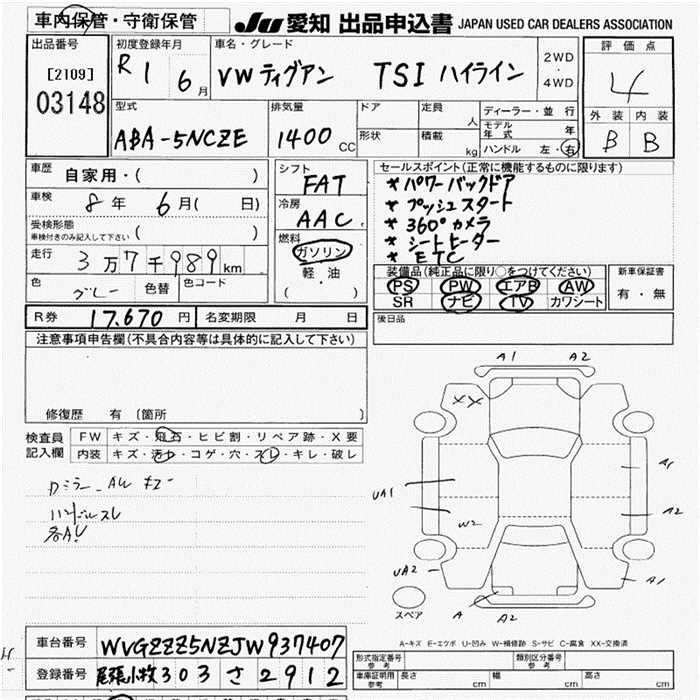 車内保管・守衛保管
JU 愛知 出品申込書 JAPAN USED CAR DEALERS ASSOCIATION
出品番号
[2109]
03148
初度登録年月
R 1 6 月
車名・グレード
VW ティグアン TSI ハイライン
2WD・4WD
評価点
4
外装 内装
B B
型式
ABA-5NCZE
排気量
1400 CC
ドア
形状
定員 人
積載 kg
ディーラー・並行
モデル年式 年
ハンドル 左・右
車歴
自家用・( )
車検
8年 6月( 日)
受検形態
車検付きのみ記入して下さい ( )
走行
3万7千989km
色
グレー
色替
色コード
シフト
FAT
冷房
AAC
燃料
ガソリン
軽・油
( )
セールスポイント(正常に機能するものに限ります)
* パワーバックドア
* プッシュスタート
* 360°カメラ
* シートヒーター
* ETC
装備品(純正品に限り○をつけてください)
PS PW エアB AW
SR ナビ TV カワシート
新車保証書
有・無
R券 17,670 円 名変期限 月 日
後日品
注意事項申告欄(不具合内容等は具体的に記入して下さい)
修復歴 有 〔箇所 〕
検査員記入欄
FW キズ・飛石・ヒビ割・リペア跡・X要
内装 キズ・汚れ・コゲ・穴・スレ・キレ・破レ
ハンドルスレ
A1 A2
XX
A1
UA1
A2
W2
UA2
A1
A
A2
スペア
A-キズ E-エクボ U-凹み W-補修跡 S-サビ C-腐食 XX-交換済
車台番号 WVGZZZ5NZJW937407
登録番号 尾張小牧 303 さ 2912
形式指定番号 参考
類別区分番号 参考
車庫証明用 参考
長さ cm 幅 cm 高さ cm